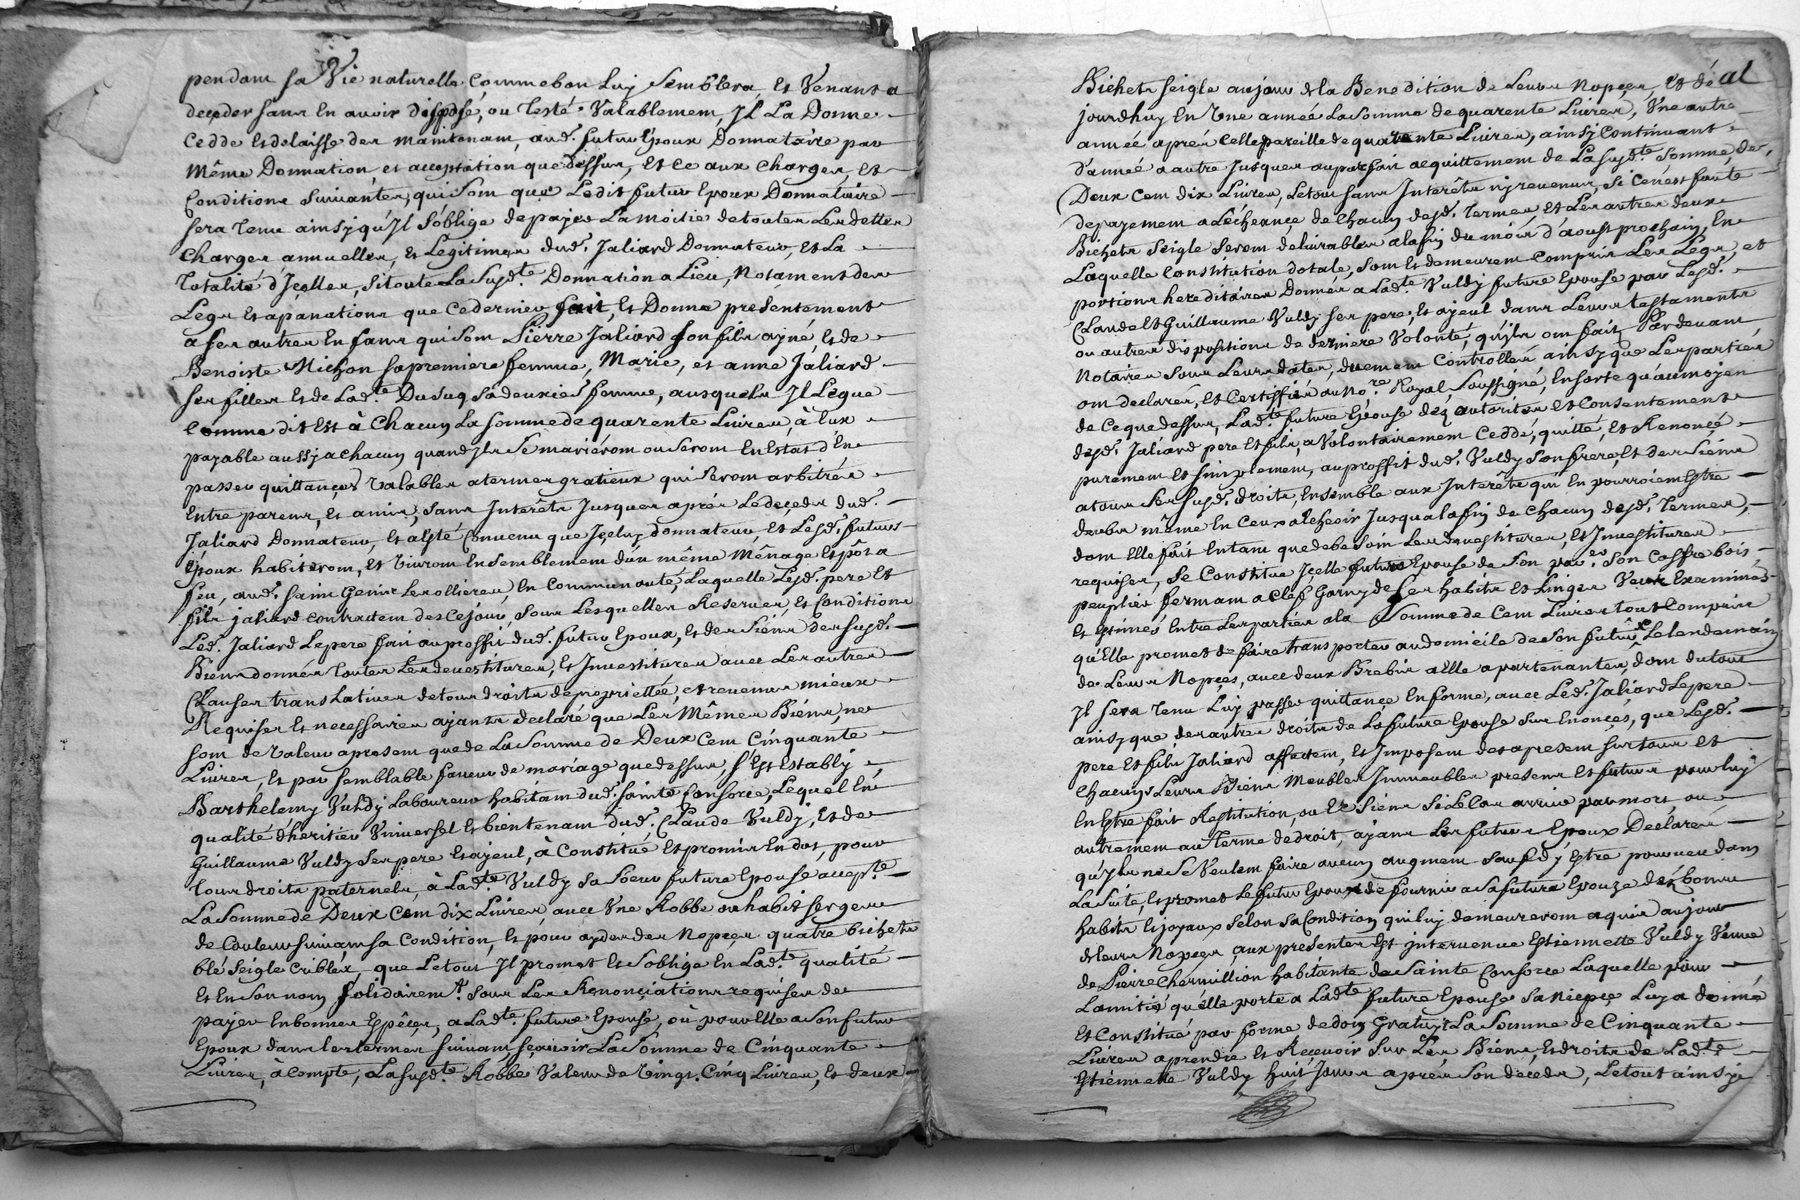 pendant sa Vie naturelle Comme bon Luy Semblera, Et Venant a
deceder sans En avoir disposé, ou Testé Valablement, Jl La Donne
Cedde Et delaisse des Maintenant, aud. futur Epoux Donnataire par
Même Donnation, et acceptation que dessus, Et Ce aux Charges, Et
Conditions Suivantes, qui Sont que Ledit futur Epoux Donnataire
sera Tenu ainsy qu'Jl S'oblige de payer La moitie de toutes Les dettes
Charges annuelles, Et Legitimes dud. Jaliard Donnateur, Et La
Totalité d'Jcelles, si toute La Susd.te Donnation a Lieu, Notament des
Legs Et apanations que Ce dernier fait, Et Donne presentement
a ses autres Enfans qui Sont Pierre Jaliard son fils ayné Et de
Benoiste Michon sa premiere femme, Marie, et anne Jaliard
ses filles Et de Lad.te Dusuq sa deuxie. femme, ausquels Jl Legue
comme dit Est à Chacun La Somme de quarente Livres, à Eux
payable aussy a Chacun quand Jls Se mariéront ou Seront En Estat d'En
passer quittances Valables a termes gratieux qui Seront arbitrés
Entre parens, Et amis, Sans Interêts Jusques aprés Le deceds dud.
Jaliard Donnateur, Et a Esté Convenu que Jceluy donnateur, Et Lesd. futurs
Epoux habiteront, Et Vivront Ensemblement d'un même Ménage Et pôt a
feu, aud. Saint Genis Lerollieres En Communauté, Laquelle Lesd. pere Et
fils jaliard contractent des Cejour, sous Lesquelles Reserves Et Conditions
Led. Jaliard Le pere fait au proffit dud. futur Epoux, Et des Siens des susd.
Biens donnés Toutes Les devestitures, Et Jnvestitures avec Les autres
Clauses translatives de tous droits de proprietée, et revenus mieux
Requises Et necessaires ayants declaré que Les Mêmes Biens, ne
sont de Valeur apresent que de La Somme de Deux Cent Cinquante
Livres, Et par semblable faveur de mariage que dessus, S'Est Estably
Barthelemy Vuldy Laboureur habitant dud. sainte Consorce, Lequel En
qualité d'heritier Vniversel Et bientenant dud. Claude Vuldy, Et de
Guillaume Vuldy Ses pere Et ajeul, à Constitué Et promis En dot, pour
tous droits paternels, à Lad.te Vuldy Sa Soeur future Epouse accept.te
La Somme de Deux Cent dix Livres, avec Vne Robbe ou habit serge
de Couleur suivant sa Condition, Et pour ayder des Nopces quatre bichets
blé Seigle criblés, que Letout Jl promet Et S'oblige En Lad.te qualité
Et En Son nom, Solidairem.t Sous Les Renonciations requises de
payer En bonnes Espêces, a Lad.te future Epouse, où pour Elle a Son futur
Epoux dans les termes suivans scavoir La Somme de Cinquante
Livres, à Compte, La susd.te Robbe Valeur de Vingt Cinq Livres, Et deux
al
Bichets seigle au jour de la Benediction de Leurs Nopces, Et dé
jourdhuy En Vne année La Somme de quarente Livres, Vne autre
année aprés Celle pareille de quarente Livres, ainsy Continuant
d'année a autre Jusques au parfait acquittement de La susd.te Somme, de
Deux Cent dix Livres, Letout sans Interêts nj revenus, si Ce n'est faute
de payement a L'écheance de Chacun desd. Termes Et Les autres deux
Bichets Seigle Seront delivrables a la fin du mois d'aoust prochain, En
Laquelle Constitution dotale, sont Et demeurent Compris Les Legs, et
portions hereditaires Donnés a Lad.te Vuldy future Epouse par Lesd.
Claude Et Guillaume Vuldy Ses pere, Et ajeul dans Leurs testaments
ou autres dispositions de derniere Volonté, qu'ils ont fait Pardevant
Notaires sous Leurs dates, duement Controllés ainsy que Les parties
ont declarer, Et Certiffié au No.re Royal, Soussigné, En sorte qu'aumoyen
de Ce que dessus, Lad.te future Epouse dez autorités Et Consentement
desd. Jaliard pere Et fils, a Volontairement Ceddé, quitté, Et Renoncé
purement Et simplement, au proffit dud. Vuldy Son frere, Et des Siens
a tous Ses susd. droits, Ensemble aux Interêts qui En pourroient Estre
deubs même En Ceux a Echeoir Jusqua la fin de Chacun desd. Termes,
dont Elle fait En tant que de besoin Les devestitures, Et Jnvestitures
requises, Se Constitue Jcelle future Epouse de Son par.er Son Coffre bois
peuplier fermant a Clef, Garny de Ses habits Et Linges Veux Examinés
Et Estimés Entre Les parties a la Somme de Cent Livres tout Compris
qu'Elle promet de faire transporter au domicile de Son futur Le lendemain
de Leurs Nopces, avec deux Brebis a Elle apartenantes, dont du tout
Jl sera Tenu Luy passer quittance En forme, avec Led. Jaliard Le pere
ainsy que des autres droits de La future Epouse sus Enoncés, que Lesd.
pere Et fils Jaliard affectent, Et Jmposent des apresent sur tous Et
Chacuns Leurs Biens Meubles Jmmeubles presens Et futurs pour luy
En Estre fait Restitution, ou Ez Siens Si Le Cas arrive par mort, ou
autrement au Terme de droit, ayans Les futurs Epoux Déclarés
qu'Jls ne Se Veulent faire aucun augment sauf d'y Estre pourveu dans
La Suite, Et promet Le futur Epoux de fournir a Sa future Epouze des bons
habits Et joyaux Selon Sa Condition qui luy demeureront aquis au jour
de leurs Nopces aux presentes Est jntervenue Estiennette Vuldy Veuve
de Pierre Chermillion habitante de Sainte Consorce Laquelle pour
L'amitié qu'elle porte a Lad.te future Epouse Sa Niepce Luy a donné
Et Constitué par forme de don Gratuit La Somme de Cinquante
Livres aprendre Et Recevoir Sur Les Biens, Et droits de Lad.te
Estiennette Vuldy huit Jours apres Son deceds, Letout ainsy